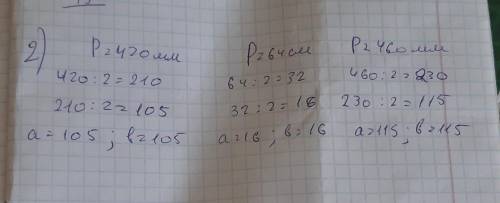 2)
P=420мм
420:2=210
210:2=105
a=105; b=105
P=64см
64:2=32
32:2=16
a=16; b=16
P=460мм
460:2=230
230:2=115
a=115; b=115